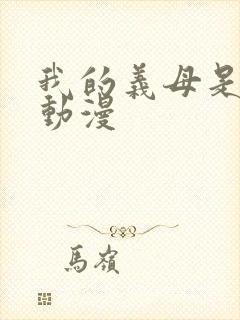 我的義母是
動漫
馬嶺